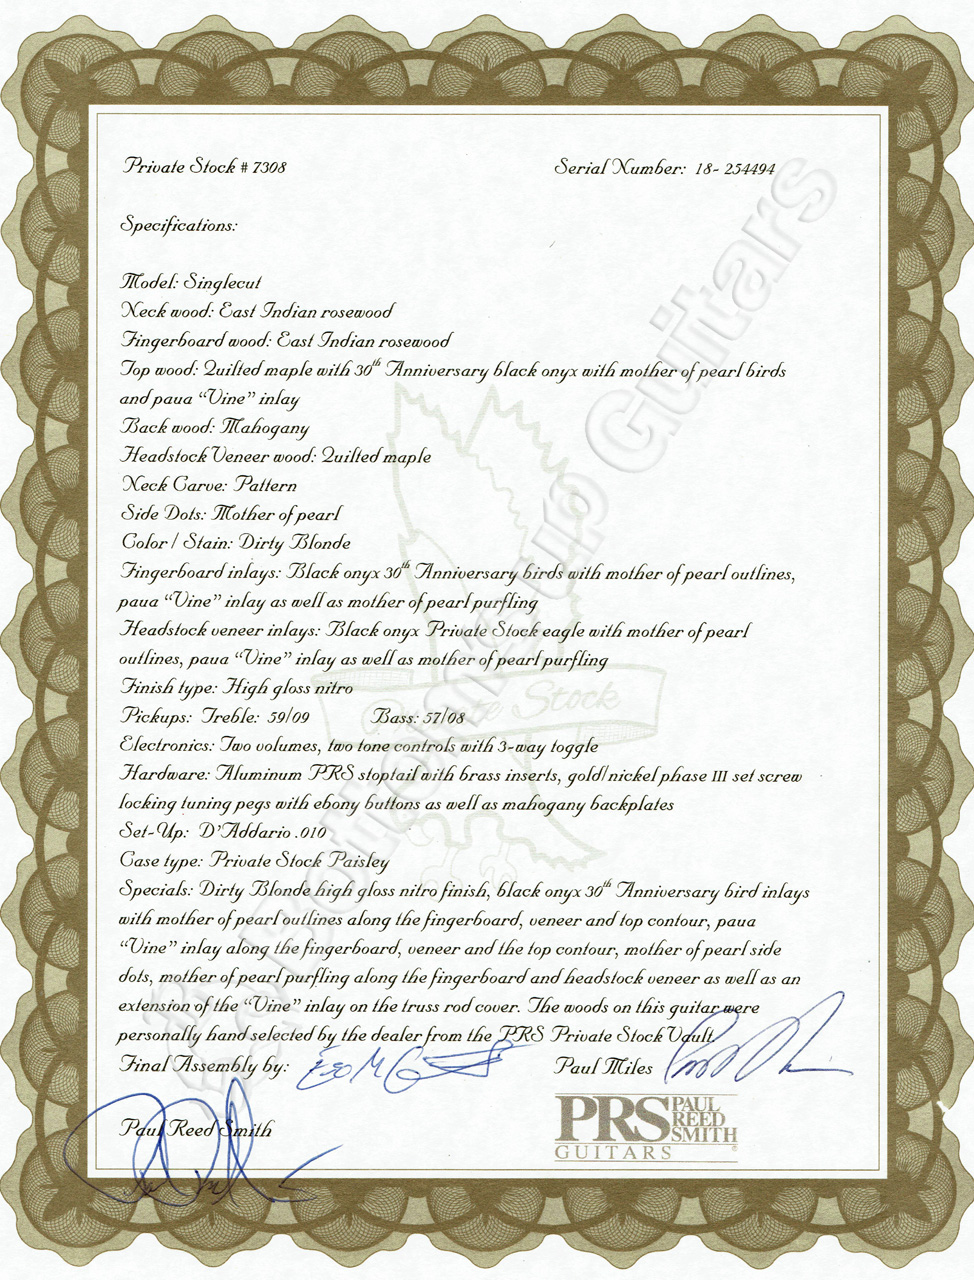 Private Stock # 7308
Serial Number: 18- 254494
Specifications:
Model: Singlecut
Neck wood: East Indian rosewood
Fingerboard wood: East Indian rosewood
Top wood: Quilted maple with 30th Anniversary black onyx with mother of pearl birds
and paua “Vine” inlay
Back wood: Mahogany
Headstock Veneer wood: Quilted maple
Neck Carve: Pattern
Side Dots: Mother of pearl
Color / Stain: Dirty Blonde
Fingerboard inlays: Black onyx 30th Anniversary birds with mother of pearl outlines,
paua “Vine” inlay as well as mother of pearl purfling
Headstock veneer inlays: Black onyx Private Stock eagle with mother of pearl
outlines, paua “Vine” inlay as well as mother of pearl purfling
Finish type: High gloss nitro
Pickups: Treble: 59/09 Bass: 57/08
Electronics: Two volumes, two tone controls with 3-way toggle
Hardware: Aluminum PRS stoptail with brass inserts, gold/nickel phase III set screw
locking tuning pegs with ebony buttons as well as mahogany backplates
Set-Up: D'Addario .010
Case type: Private Stock Paisley
Specials: Dirty Blonde high gloss nitro finish, black onyx 30th Anniversary bird inlays
with mother of pearl outlines along the fingerboard, veneer and top contour, paua
“Vine” inlay along the fingerboard, veneer and the top contour, mother of pearl side
dots, mother of pearl purfling along the fingerboard and headstock veneer as well as an
extension of the “Vine” inlay on the truss rod cover. The woods on this guitar were
personally hand selected by the dealer from the PRS Private Stock Vault.
Final Assembly by:
Paul Miles
Paul Reed Smith
PRS PAUL REED SMITH
GUITARS
Private Stock
Bottom's up Guitars